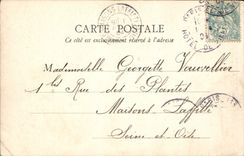 CARTE POSTALE
Ce côté est exclusivement réservé à l'adresse
Mademoiselle Georgette Vouvellier
1 bis Rue des Plantes
Maisons Laffitte
Seine et Oise